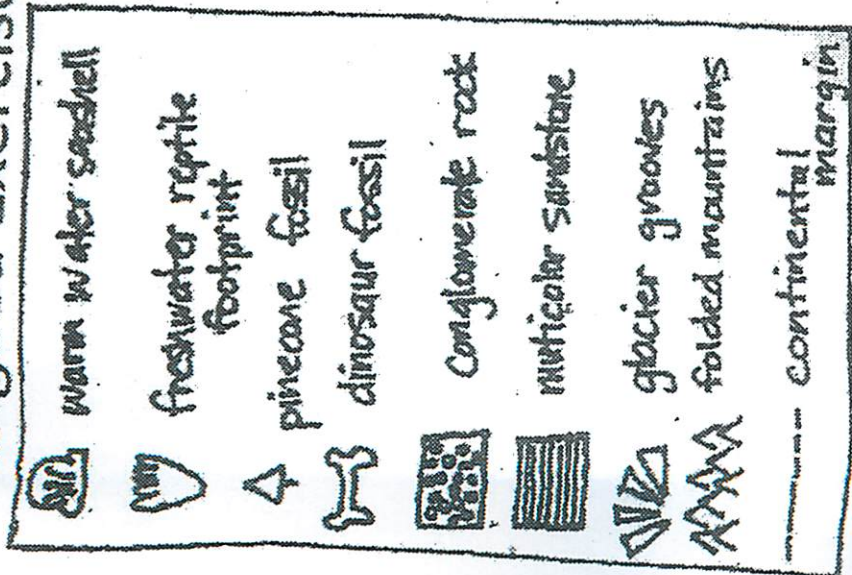 warm water seashell
freshwater reptile
footprint
pinecone fossil
dinosaur fossil
conglomerate rock
multicolor sandstone
glacier grooves
folded mountains
continental
margin